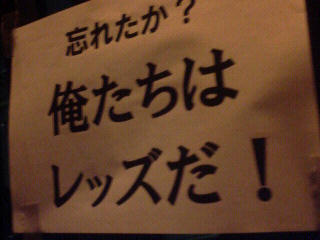 忘れたか？
俺たちは
レッズだ！